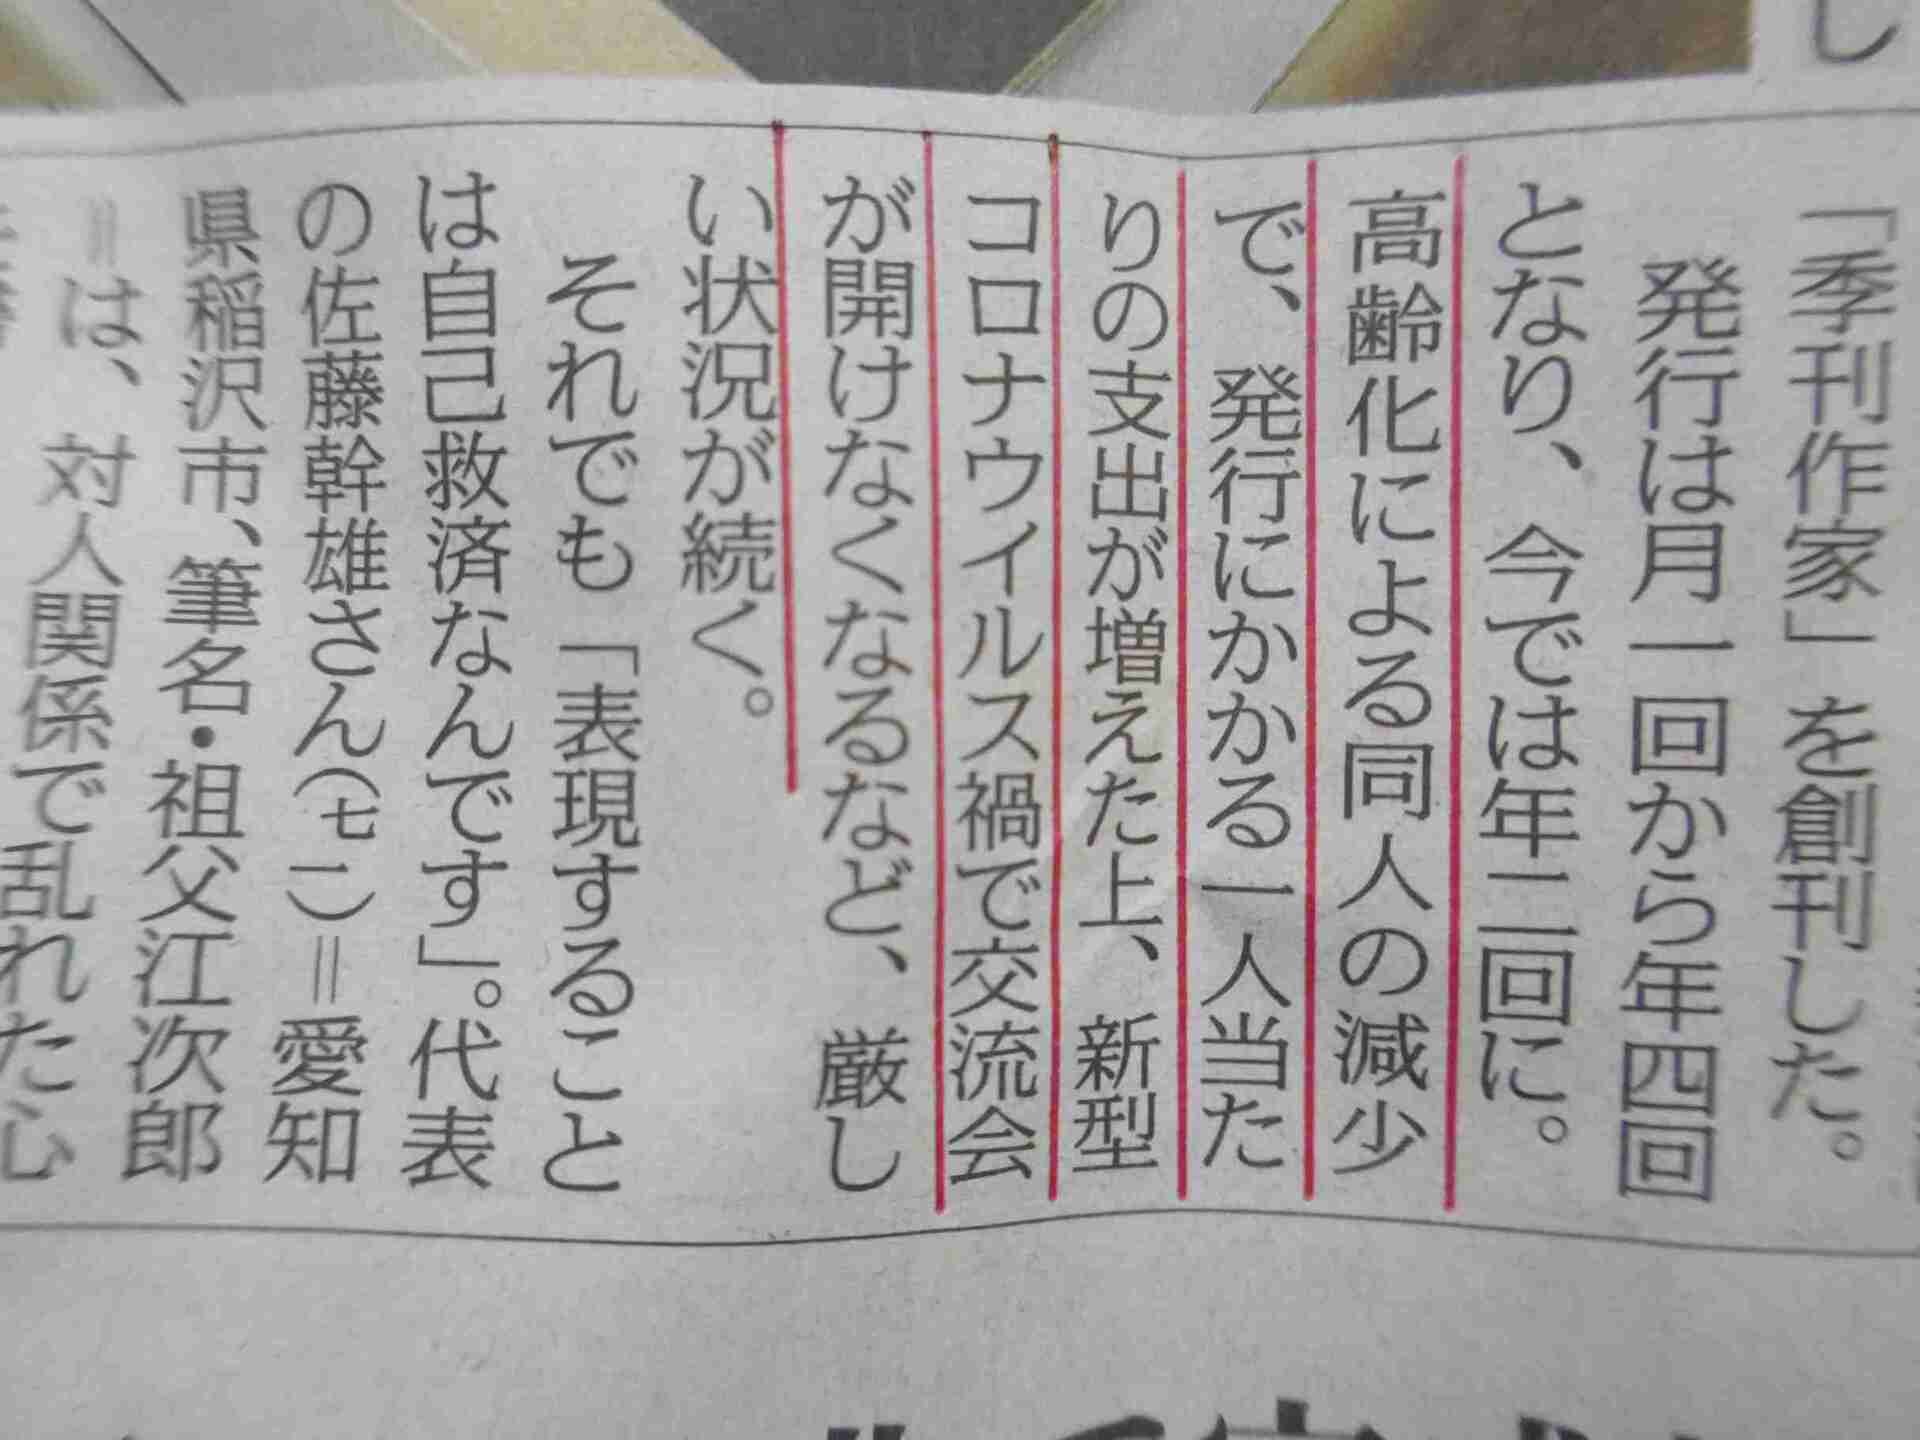 「季刊作家」を創刊した。
発行は月一回から年四回
となり、今では年二回に。
高齢化による同人の減少
で、発行にかかる一人当た
りの支出が増えた上、新型
コロナウイルス禍で交流会
が開けなくなるなど、厳し
い状況が続く。
それでも「表現すること
は自己救済なんです」。代表
の佐藤幹雄さん(七二)=愛知
県稲沢市、筆名・祖父江次郎
=は、対人関係で乱れた心